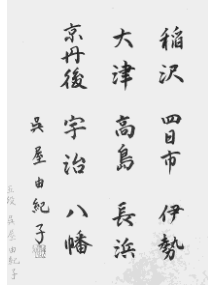 稲沢 四日市 伊勢
大津 高島 長浜
京丹後 宇治 八幡
呉屋由紀子
五段 呉屋由紀子